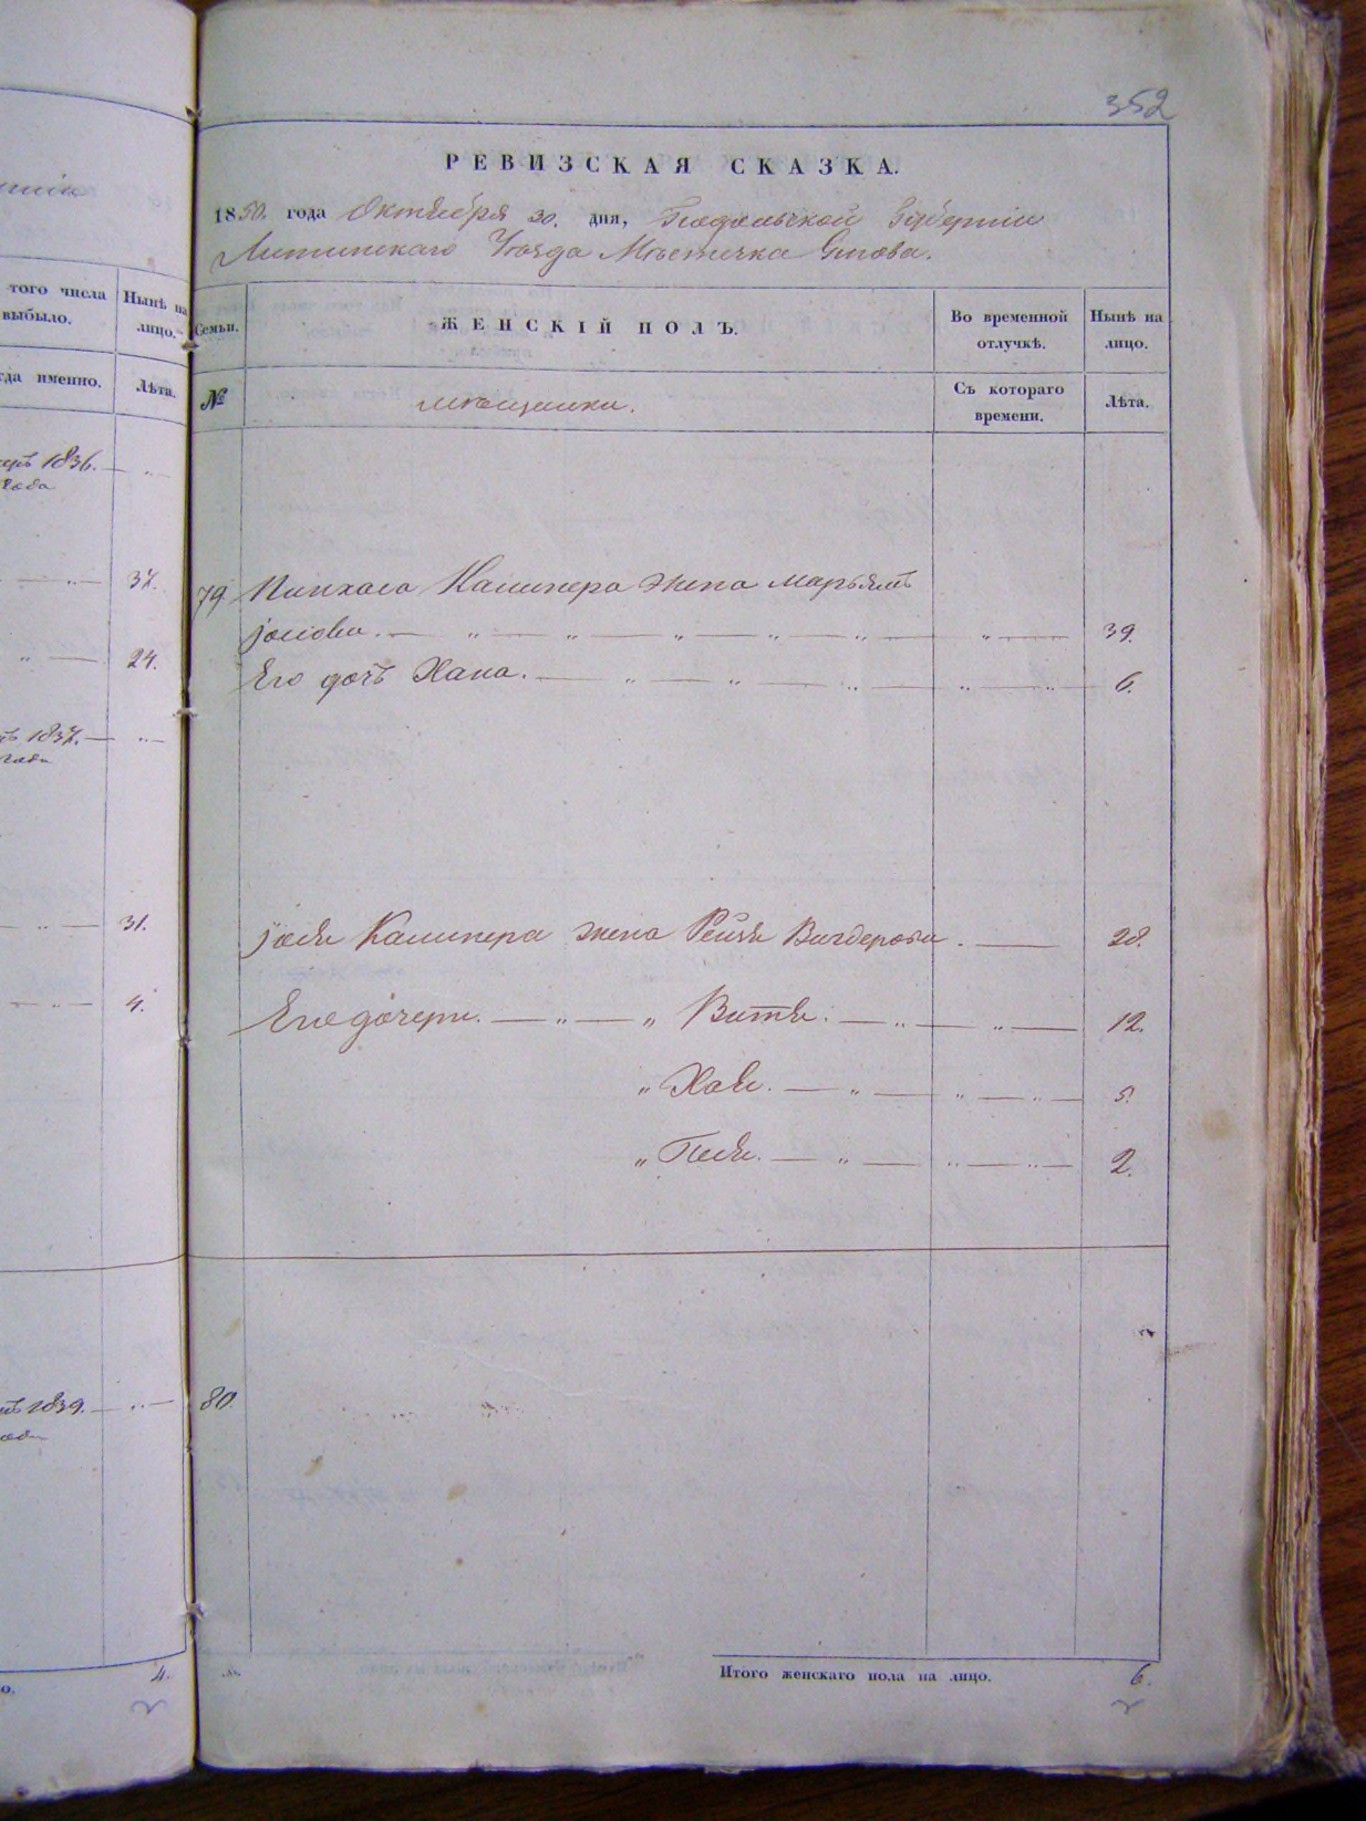 352
РЕВИЗСКАЯ СКАЗКА.
1850. года Октября 30. дня, Подольской Губернии
Литинскаго Уезда Местечка
того числа
выбыло.
Нынѣ на
лицо.
гда именно.
Лѣта.
Семьи.
ЖЕНСКІЙ ПОЛЪ.
Во временной
отлучкѣ.
Нынѣ на
лицо.
№
мещанки.
Съ котораго
времени.
Лѣта.
1836.
года
37.
24.
1837.
года
31.
4.
1839.
79 Пинхаса жена Марьямъ
39.
Его дочь Хана. 6.
жена Рейзя Вигдорова. 28.
Его дочери. " Витя. 12.
" Хая. 5.
" 2.
80
4.
Итого женскаго пола на лицо. 6.